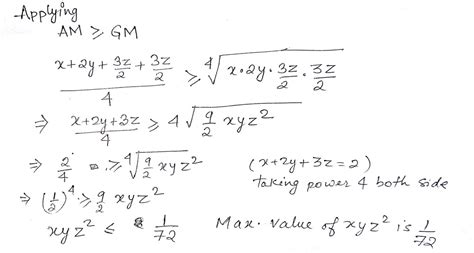 Applying
AM ≥ GM
(x+2y+3z/2+3z/2)/4 ≥ ∜(x•2y•3z/2•3z/2)
⇒ (x+2y+3z)/4 ≥ 4√(9/2 xyz²)
⇒ 2/4 ≥ ∜(9/2 xyz²) (x+2y+3z=2)
taking power 4 both side
⇒ (1/2)⁴ ≥ 9/2 xyz²
xyz² ≤ 1/72 Max. value of xyz² is 1/72